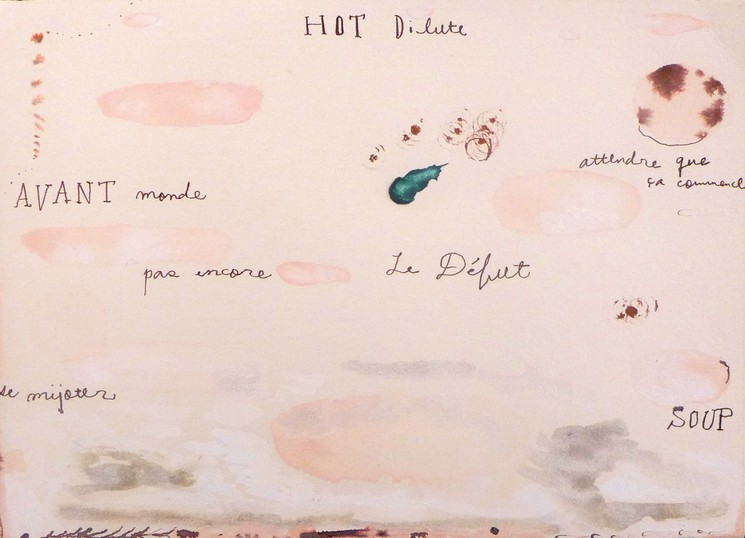 HOT Dilute
attendre que
ça commence
AVANT monde
pas encore
Le Début
se mijoter
SOUP